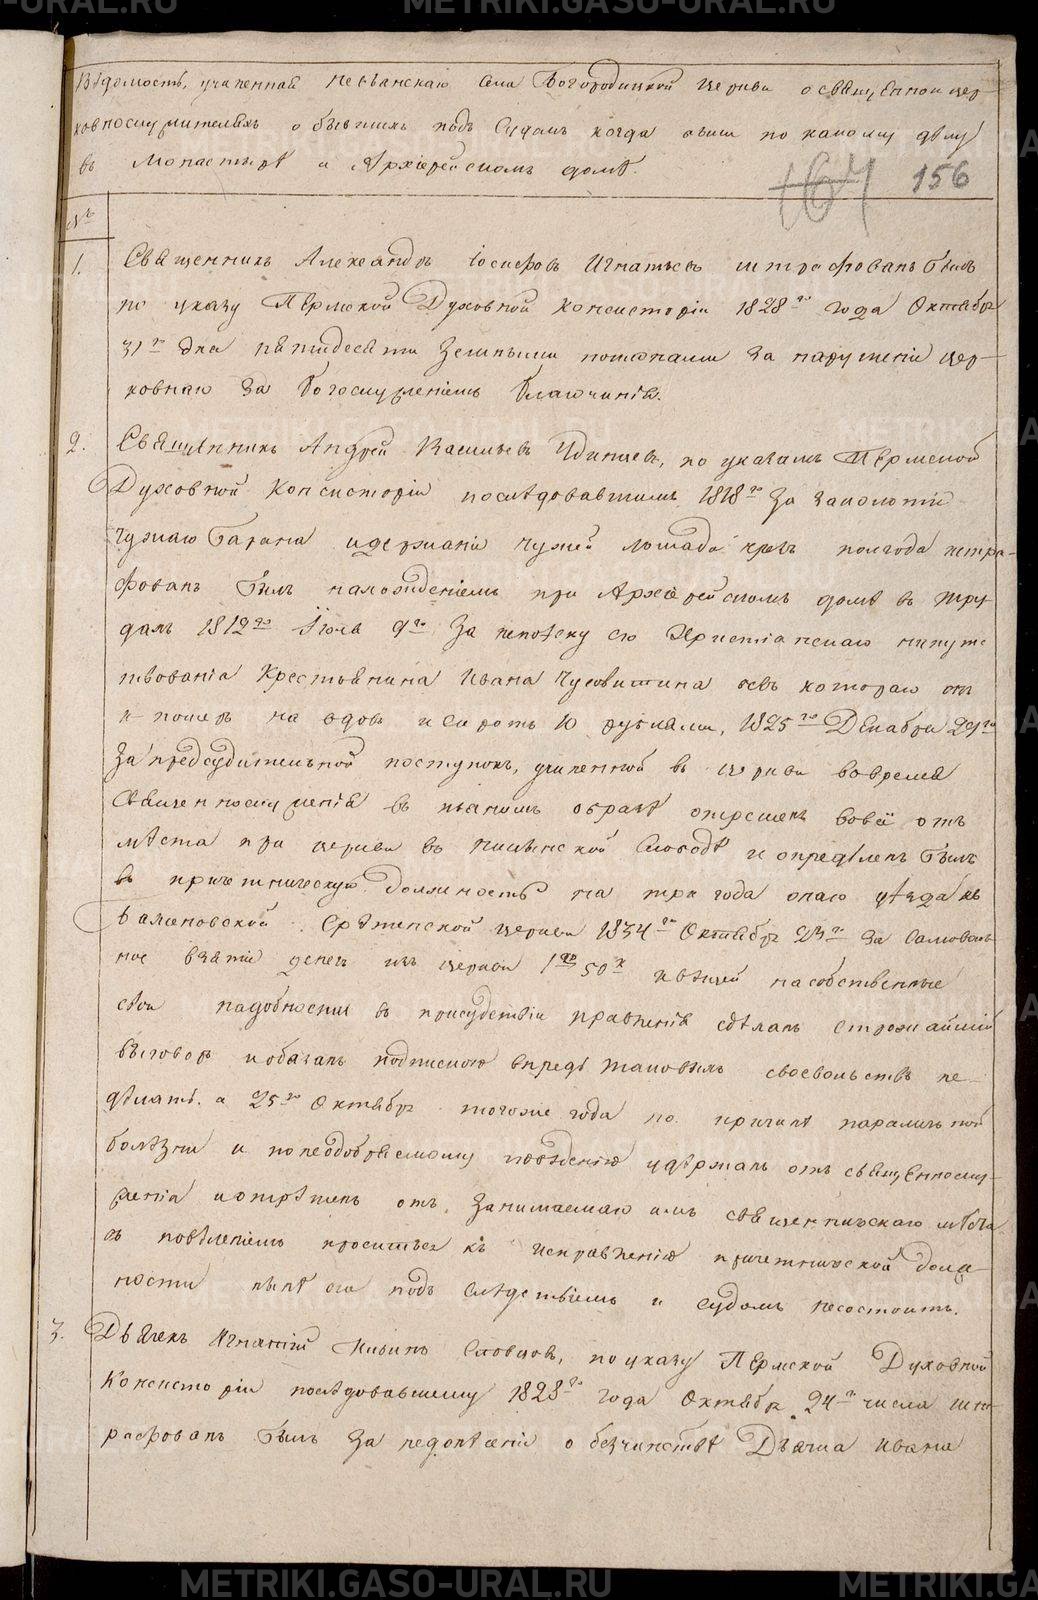 METRIKI.GASO-URAL.RU
Вѣдомость, учиненная Невьянскаго села Богородицкой церкви о священноцер-
ковнослужителяхъ о бывшихъ подъ судомъ когда оныи по какому дѣлу
въ монастырѣ и Архіерейскомъ домѣ.
164 156
№
1. Священникъ Александръ Іосифовъ Игнатьевъ штрафованъ былъ
по указу Пермской Духовной Консисторіи 1828го года Октября
31го дня пятидесяти земными поклонами за нарушеніе цер-
ковнаго за богослуженіемъ благочинія.
2. Священникъ Андрей Васильевъ Удинцевъ, по указамъ Пермской
Духовной Консисторіи послѣдовавшимъ 1818го за заколотіе
чужаго барана и держаніе чужей лошади чрезъ полгода штра-
фованъ былъ нахожденіемъ при Архіерейскомъ домѣ въ тру-
дахъ 1819го Іюля 9го за Христіанскаго напут-
ствованія Крестьянина Ивана безъ котораго онъ
и померъ на вдовъ и сиротъ 10 рублями, 1825го Декабря 29го
за предсудительной поступокъ, учиненной въ церкви вовремя
священнослуженія въ пьяномъ образѣ отрешенъ вовсѣ отъ
мѣста при церкви въ слободѣ и опредѣленъ былъ
въ причетническую должность на три года онаго уѣзда къ
Срѣтенской церкви 1834го Октября 23го за самоволь-
ное взятіе денегъ изъ церкви 1 ру 50 к на собственные
свои надобности въ присудствіи правленія сдѣланъ строжайшій
выговоръ и обязанъ подпискою впредь таковыхъ своевольствъ не-
дѣлать. а 25го Октября тогоже года по причинѣ параличной
болѣзни и по неодобряемому поведенію удержанъ отъ священнослу-
женія и отрѣшенъ отъ занимаемаго имъ священническаго мѣста
съ повѣленіемъ проситься къ исправленію причетнической долж-
ности нынѣ онъ подъ слѣдствіемъ и судомъ несостоитъ.
3. Дьячекъ Игнатій Словцовъ, по указу Пермской Духовной
Консисторіи послѣдовавшему 1828го года Октября 24го числа шт-
рафованъ былъ за недонѣсеніе о безчинствѣ Дьячка Ивана
METRIKI.GASO-URAL.RU